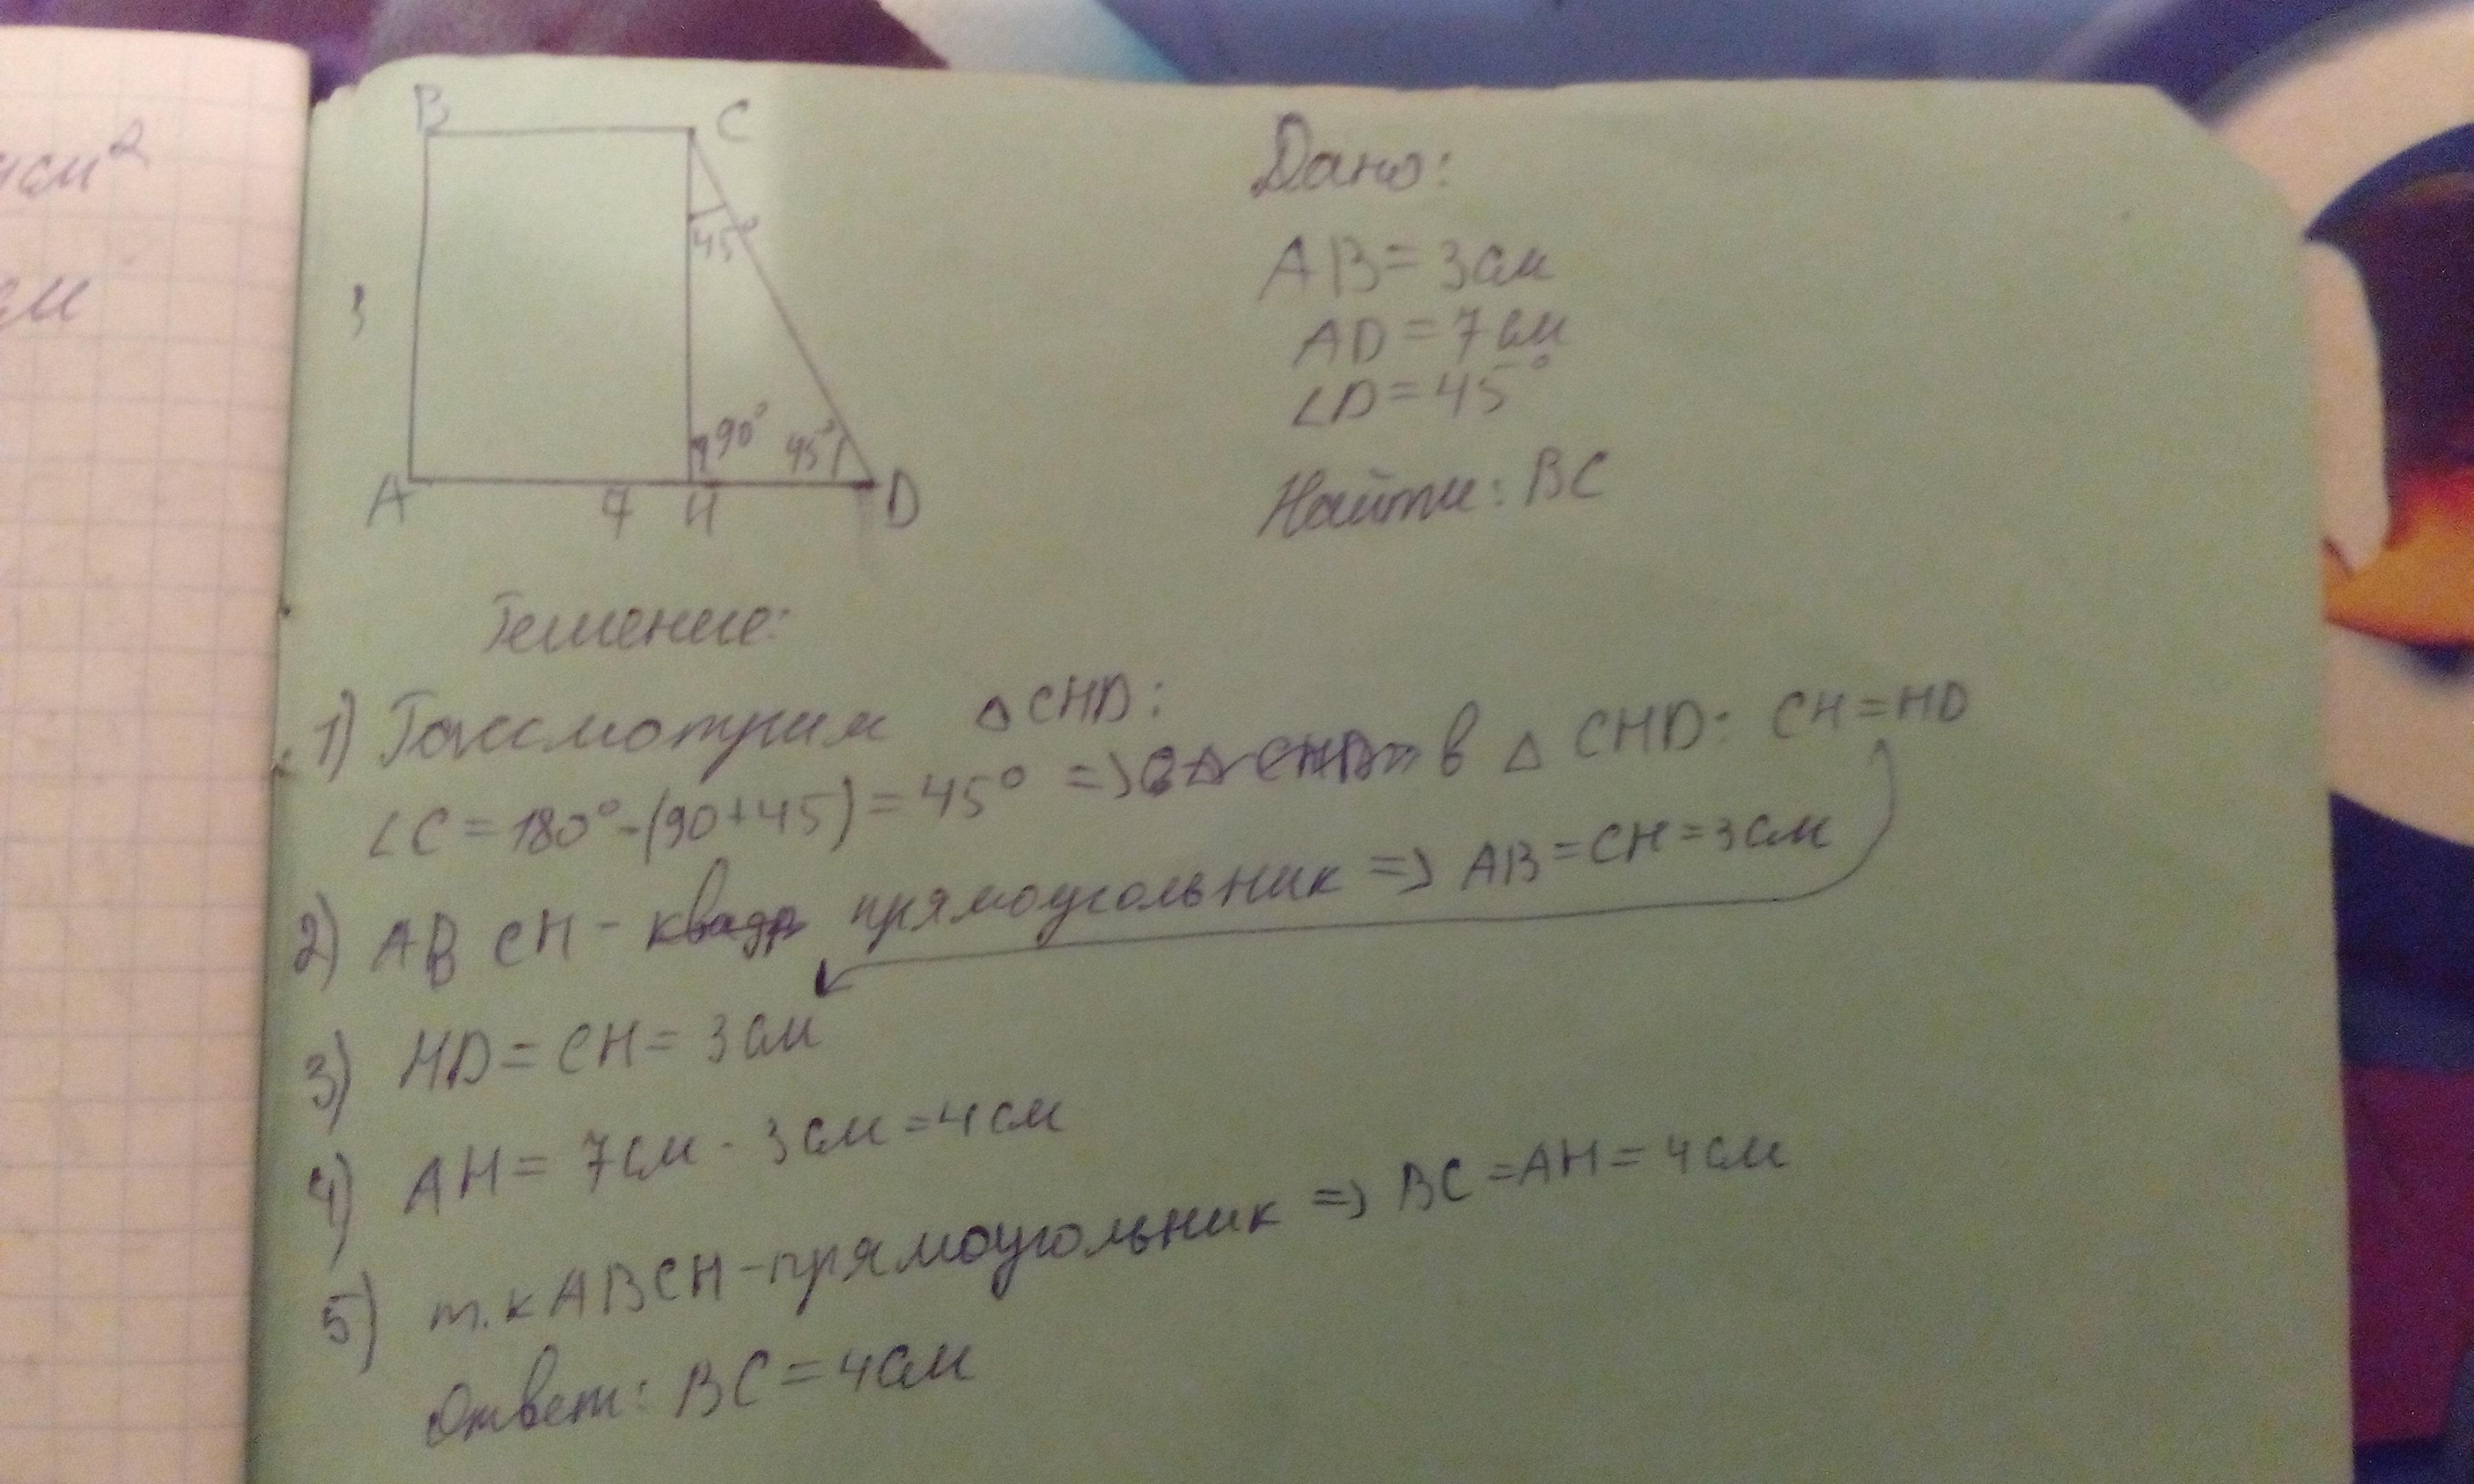 см²
см
B C
45°
3
90° 45°
A 7 H D
Дано:
AB = 3 см
AD = 7 см
∠D = 45°
Найти: BC
Решение:
1) Рассмотрим △ CHD:
∠C = 180° - (90 + 45) = 45° => в △ CHD: CH = HD
2) ABCH - квадр прямоугольник => AB = CH = 3 см
3) HD = CH = 3 см
4) AH = 7 см - 3 см = 4 см
5) т.к ABCH - прямоугольник => BC = AH = 4 см
Ответ: BC = 4 см